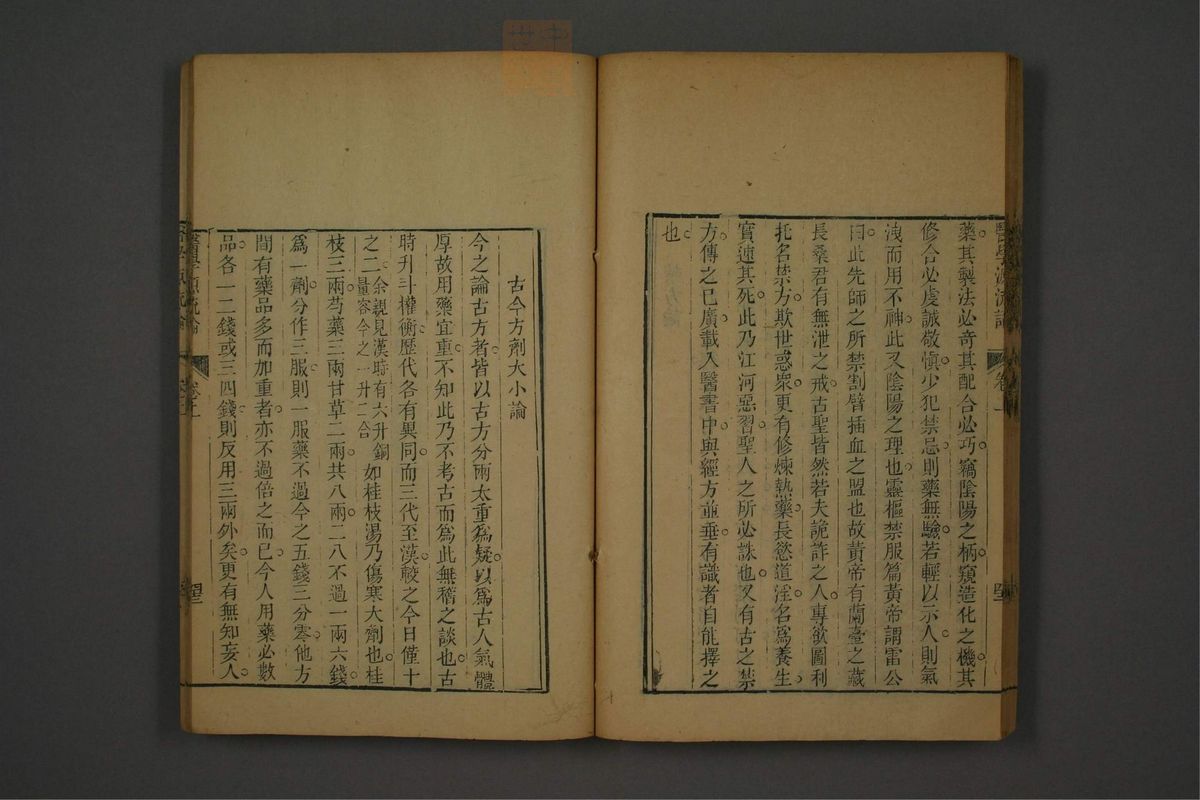 醫學源流論 卷上
藥其製法必奇其配合必巧竊陰陽之柄窺造化之機其
修合必虔誠敬慎少犯禁忌則藥無驗若輕以示人則氣
洩而用不神此又陰陽之理也靈樞禁服篇黃帝謂雷公
曰此先師之所禁割臂揷血之盟也故黃帝有蘭臺之藏
長桑君有無泄之戒古聖皆然若夫詭詐之人專欲圖利
托名禁方欺世惑衆更有修煉熱藥長慾道淫名爲養生
實速其死此乃江河惡習聖人之所必誅也又有古之禁
方傳之已廣載入醫書中與經方並垂有識者自能擇之
也
古今方劑大小論
今之論古方者皆以古方分兩太重爲疑以爲古人氣體
厚故用藥宜重不知此乃不考古而爲此無稽之談也古
時升斗權衡歷代各有異同而三代至漢較之今日僅十
之二余親見漢時有六升銅量容今之一升二合如桂枝湯乃傷寒大劑也桂
枝三兩芍藥三兩甘草二兩共八兩二八不過一兩六錢
爲一劑分作三服則一服藥不過今之五錢三分零他方
間有藥品多而加重者亦不過倍之而已今人用藥必數
品各一二錢或三四錢則反用三兩外矣更有無知妄人
醫學源流論 卷上